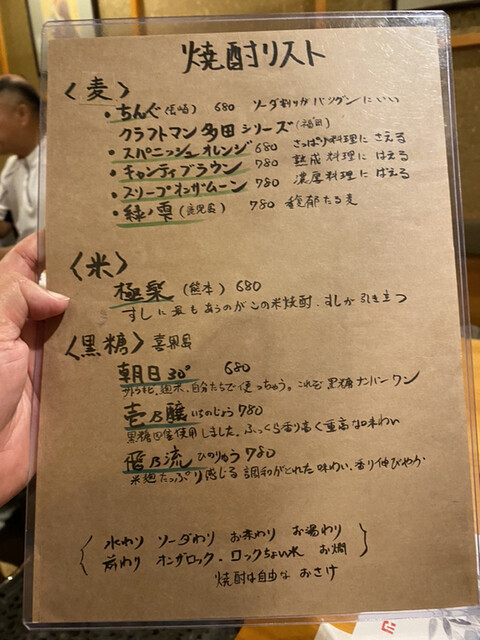 焼酎リスト
〈麦〉
・ちんぐ(長崎) 680 ソーダ割りがバツグンにいい
クラフトマン多田シリーズ(福岡)
・スパニッシュオレンジ 680 さっぱり料理に さえる
・キャンティブラウン 780 熟成料理に はえる
・スリープオンザムーン 780 濃厚料理に ばえる
・緑ノ雫(鹿児島) 780 馥郁たる麦
〈米〉
極楽(熊本) 680
すしに最もあうのがこの米焼酎、すしが引き立つ
〈黒糖〉喜界島
朝日30° 680
サトウキビ、廻米、自分たちで使っちゃう。これぞ黒糖ナンバーワン
壱乃醸 いちのじょう 780
黒糖四倍使用しました。ふっくら香り高く重高な味わい
飛乃流 ひのりゅう 780
米麹たっぷり感じる 調和がとれた味わい、香り伸びやか
水わり ソーダわり お茶わり お湯わり
前わり オンザロック・ロックちょい水 お燗
焼酎は自由な おさけ